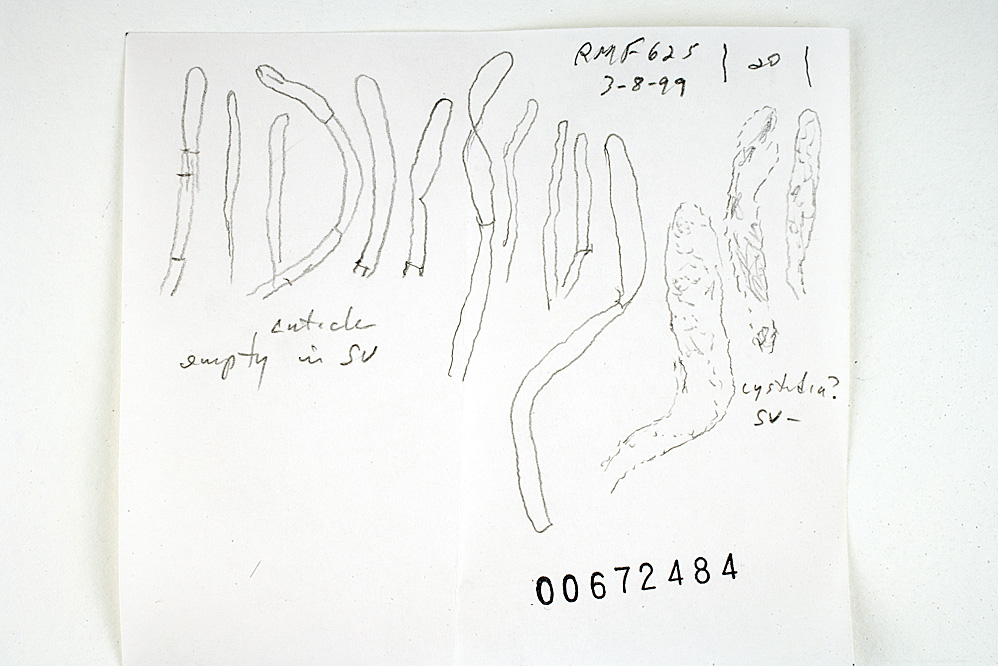 RMF 625 | 20 |
3-8-99
cuticle
empty in SV
cystidia?
SV-
00672484